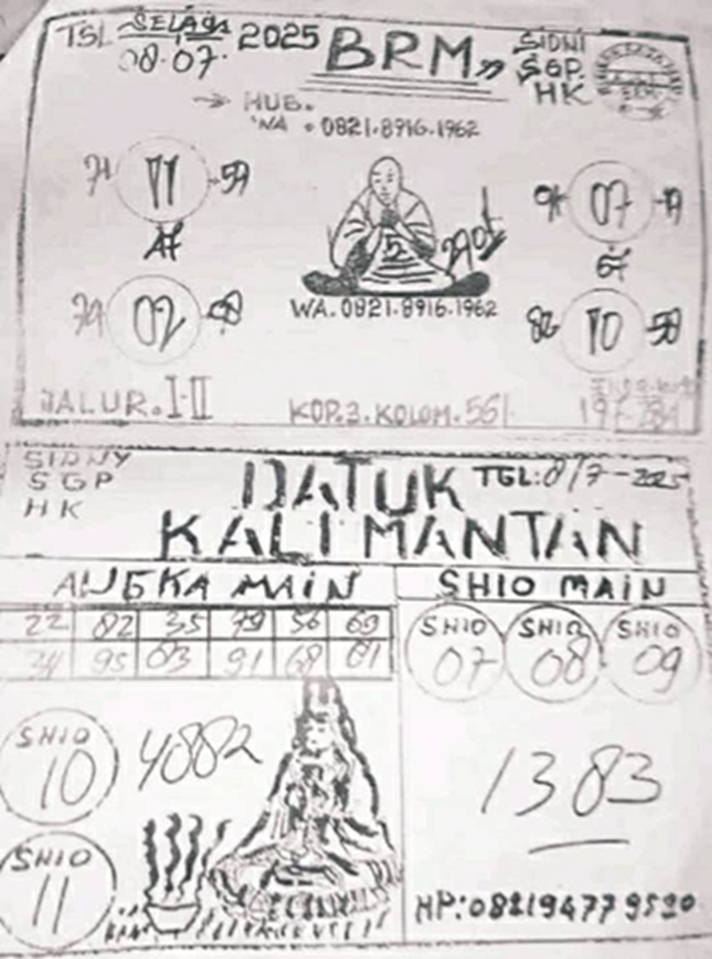 TSL SELASA 2025 BRM SIDNI
08-07. SGP.
HK
HUB.
WA . 0821.8916.1962
71 11 59
02
07
67
82 10 58
WA.0821.8916.1962
JALUR. I-II
KOP.3.KOLOM.561
SIDNY
SGP
HK
DATUK
KALIMANTAN
TGL: 8/7-2025
ANGKA MAIN
SHIO MAIN
22 82 35 79 56 60
95 83 91 68 81
SHIO 07
SHIO 08
SHIO 09
SHIO 10
4082
1383
SHIO 11
HP:082194779520